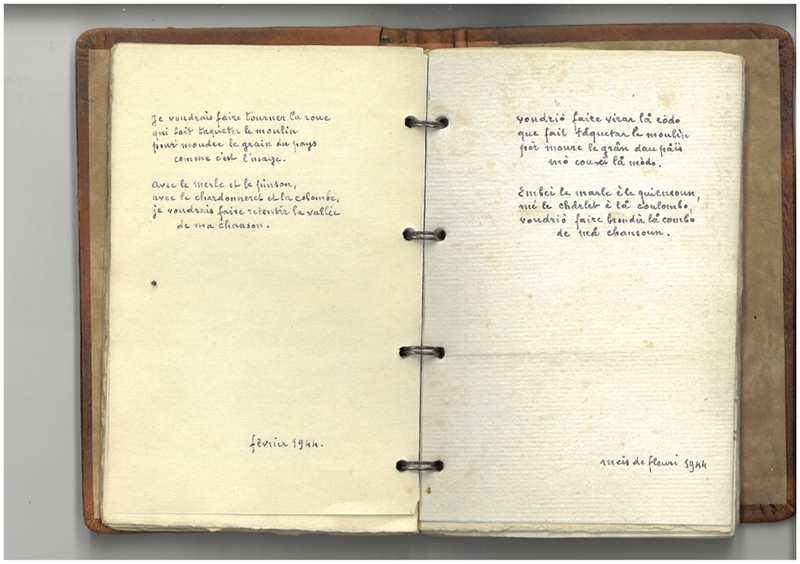 je voudrais faire tourner la roue
qui fait taqueter le moulin
pour moudre le grain du pays
comme c'est l'usage.
Avec le merle et le pinson,
avec le chardonneret et la colombe,
je voudrais faire retentir la vallée
de ma chanson.
février 1944.
voudriò faire virar lå ròdo
que fait tåquetar le moulin
pèr moure le grån dau påïs
mò cou-ei lå mòdo.
Embei le marle è le quiensoun,
mé le chårlet è lå couloumbo,
voudriò faire brondir lå combo
de må chansoun.
meis de fleuri 1944